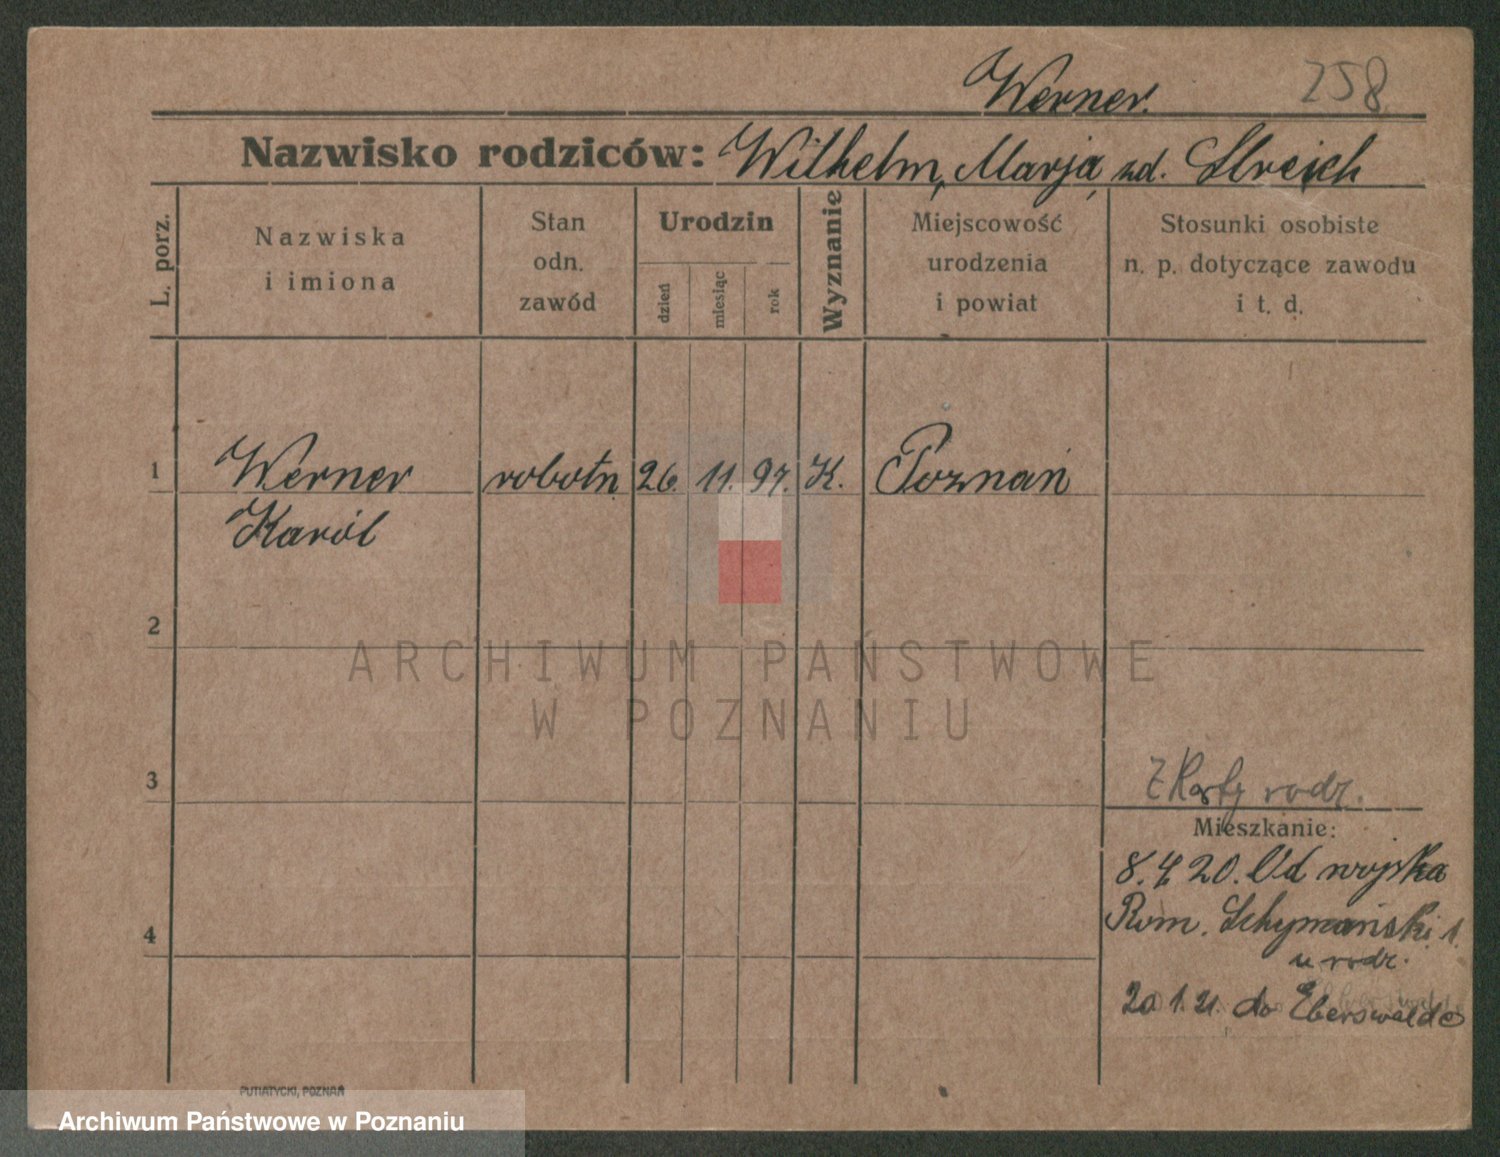 Werner. 258
Nazwisko rodziców: Wilhelm, Marja zd. Streich
L. porz.
Nazwiska
i imiona
Stan
odn.
zawód
Urodzin
dzień
miesiąc
rok
Wyznanie
Miejscowość
urodzenia
i powiat
Stosunki osobiste
n. p. dotyczące zawodu
i t. d.
1 Werner robotn. 26. 11. 97. K. Poznań
Karól
2
ARCHIWUM PAŃSTWOWE
W POZNANIU
3
Z Karty rodz.
Mieszkanie:
8.4.20. Od wojska
4
Rom. Schymański. 1.
u rodz.
20 1. 21. do Eberswalde
PUTIATYCKI, POZNAŃ
Archiwum Państwowe w Poznaniu